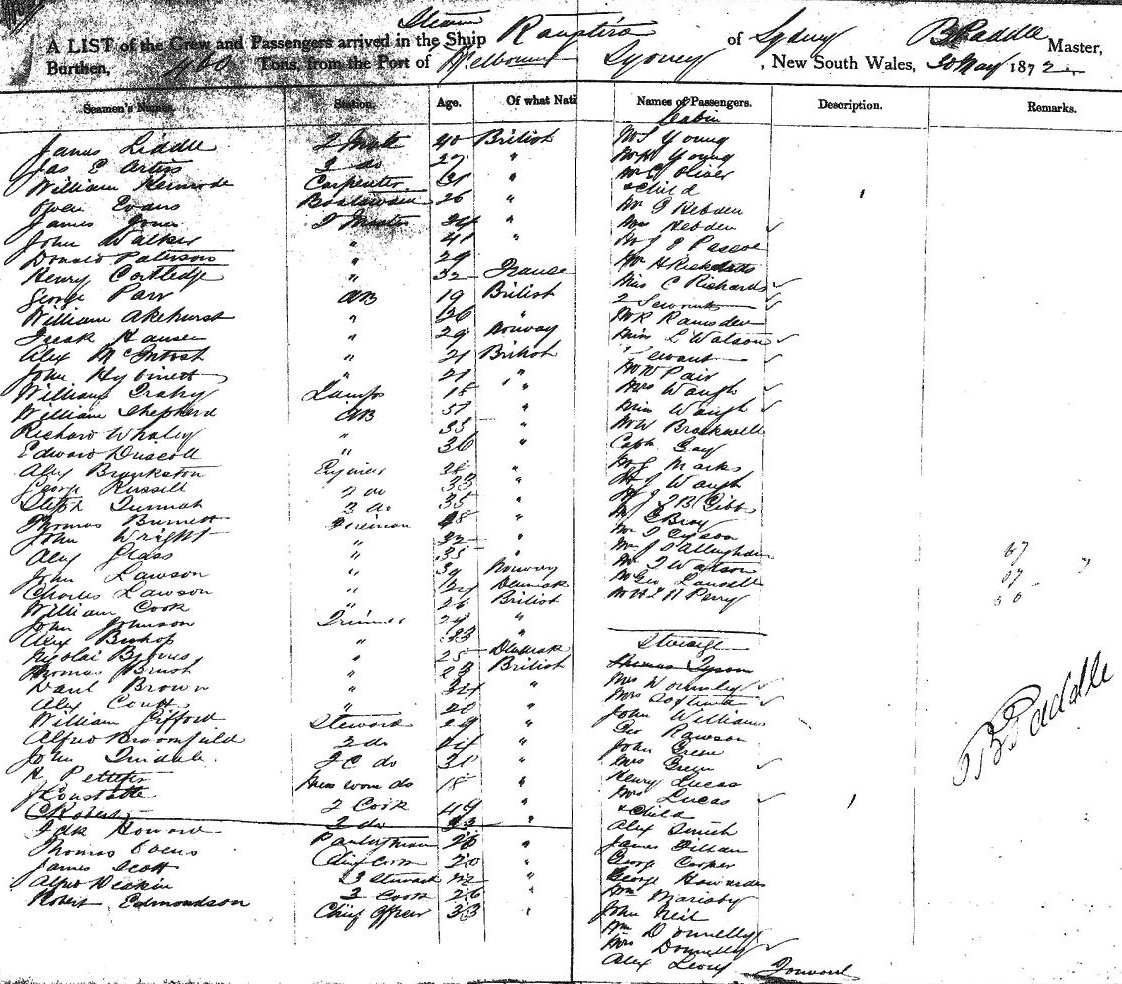 Steam
A LIST of the Crew and Passengers arrived in the Ship Rangatira of Sydney B Paddle Master,
Burthen, 460 Tons, from the Port of Melbourne Sydney, New South Wales, 30 May 1872
Seamen's Names. Station. Age. Of what Nati Names of Passengers. Description. Remarks.
Cabin
James Liddle 2 Mate 40 British
Jas E Artiss 3 do 27 "
William Kermode Carpenter 31 "
Owen Evans Boatswain 26 "
James Jones 34 "
John Walker " 41 "
Donald Paterson " 29
Henry Cartledge " 32 France
George Parr AB 19 British
William Akehurst " 26 "
Hansen " 29 Norway
Alex McIntosh " 21 British
John " 21 "
William Lamps 18 "
William Shepherd AB 37 "
Richard Whaley " 33 "
Edward Driscoll " 36 "
Alex Brankston Engineer 28 "
George Russell 2 do 33 "
Steph Dunnah 3 do 35 "
Thomas Burnett Fireman 48 "
John Wright " 32 "
Alex Glass " 35 "
John Lawson " 39 Norway
Charles Lawson " 24 Denmark
William Cook " 26 British
John Johnson Trimmer 29 "
Alex Bishop " 33 "
Nicolai " 25 Denmark
Thomas " 23 British
Paul Brown " 34 "
Alex Coutts " 20 "
William Gifford Steward 29 "
Alfred Broomfield 2 do 24 "
John Tindale F C do 31 "
K 18 "
J Constable 2 Cook 49 "
C Roberts 3 do 33 "
Jack Howard Pantryman 26 "
Thomas Chief Cook 20 "
James Scott 2 Steward 22 "
Alfred Deakin 3 Cook 26 "
Robert Edmondson Chief Officer 33 "
Mr S Young
Mr W Young
Mr G Oliver
& Child
Mr J Hebden
Mrs Hebden
Mr J J Pascoe
Mr H Ricketts
Miss C Richards
2 Servants
Mr R Ramsden
Miss L Watson
Servant
Mr W Pair
Mrs Waugh
Miss Waugh
Mr W Brackwell
Capth Gay
Mr S Marks
Mr J Waugh
Mr J J B Gibbs
Mr E Bray
Mr T Tyson
Mr J O'Callaghan
Mr J Watson
Mr Geo Lansell
Mr H J H Perry
Steerage
Thomas Tyson
Mrs Wormsley
Mrs
John Williams
Geo Rawson
John Green
Mrs Green
Henry Lucas
Mrs Lucas
& Child
Alex Smith
James Dillan
George Cooper
George Howarde
Wm
John Neil
Wm Donnelly
Mrs Donnelly
Alex Levy Forward
1
1
67
67
66
B Paddle